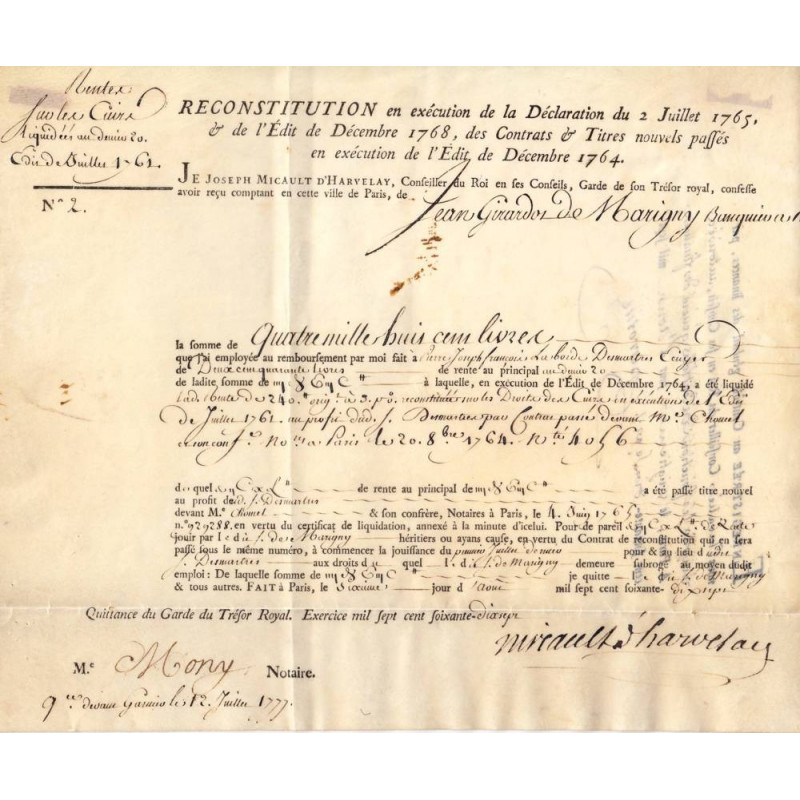 Rentes
sur les Cuirs
Liquidées au denier 20.
Edit de Juillet 1761.
N.º 2.
RECONSTITUTION en exécution de la Déclaration du 2 Juillet 1765,
& de l'Édit de Décembre 1768, des Contrats & Titres nouvels passés
en exécution de l'Édit de Décembre 1764.
JE JOSEPH MICAULT D'HARVELAY, Conseiller du Roi en ses Conseils, Garde de son Trésor royal, confesse
avoir reçu comptant en cette ville de Paris, de
Jean Girardot de Marigny Banquier à
la somme de Quatre mille huit cent livres
que j'ai employée au remboursement par moi fait à Pierre Joseph François Laborde Desmartres
de Deux cent quarante livres de rente au principal au denier 20
de ladite somme de à laquelle, en exécution de l'Édit de Décembre 1764, a été liquidé
lad. Rente de 240. sur les Droits des Cuirs en exécution de l'Edit
de Juillet 1761. au profit dud. S. Desmartres par Contrat passé devant M.e Chomel
et son conf.re No.re à Paris le 20. 8.bre 1764. N.té 4056
de rente au principal de a été passé titre nouvel
au profit dud. S. Desmartres
devant M.e Chomel & son confrère, Notaires à Paris, le 4. Juin 1765
n.º 929288. en vertu du certificat de liquidation, annexé à la minute d'icelui. Pour de pareil de Rente
jouir par le dit S. de Marigny héritiers ou ayans cause, en vertu du Contrat de reconstitution qui en sera
passé sous le même numéro, à commencer la jouissance du premier Juillet dernier pour & au lieu dudit
S. Desmartres aux droits du quel l'e d. S. de Marigny demeure subrogé au moyen dudit
emploi: De laquelle somme de je quitte le dit S. de Marigny
& tous autres. FAIT à Paris, le Sixième jour d'Aout mil sept cent soixante-dix sept
Quittance du Garde du Trésor Royal. Exercice mil sept cent soixante-dix sept
Micault d'harvelay
M.e Mony Notaire.
devant le 12. Juillet 1777.